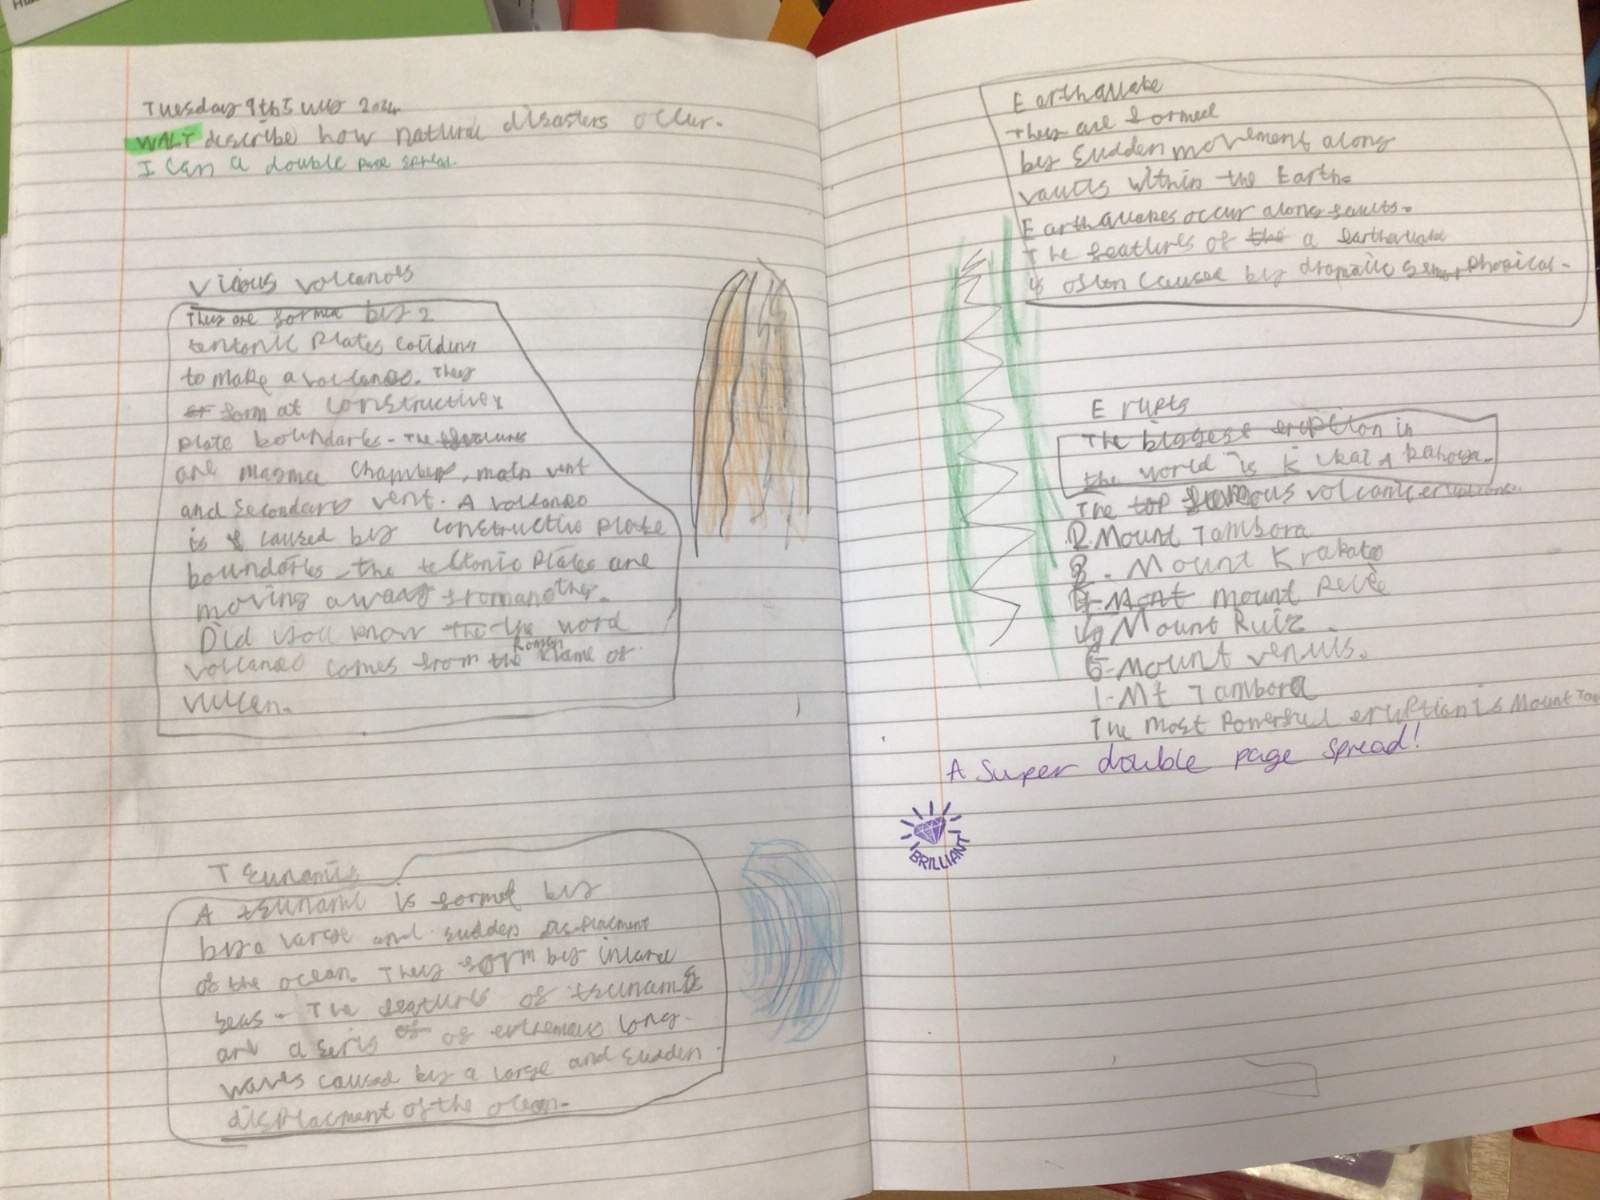 Tuesday 9th July 2024
WALT describe how natural disasters occur.
I can a double page spread.
Vicious volcanoes
They are formed by 2
tentonic plates coliding
to make a volcaneo. They
form at constructive
plate boundaries. The features
are magma chamber, main vent
and secondary vent. A volcaneo
is caused by constructive plate
boundaries the tectonic plates are
moving away from another.
Did you know the word
volcaneo comes from the Roman name of
vulcan.
Tsunamis
A tsuname is formed by
by a large and sudden displacment
of the ocean. They form by inland
seas. The features of tsunamis
are a seris of of extremeus long
waves caused by a large and sudden
displacment of the ocean.
Earthquake
They are formed
by sudden movement along
vaults within the Earth.
Earthquakes occur along faults.
The features of the a earthquake
is often caused by dramatic physical.
Erupts
The biggest eruption in
the world is
The top famous volcanic eruptions.
2. Mount Tambora
3. Mount Krakatoa
4. Mont mount Pelée
Mount Ruiz
6. Mount venuis.
1. Mt Tambora
The most powerful eruption is Mount
A Super double page spread!
BRILLIANT